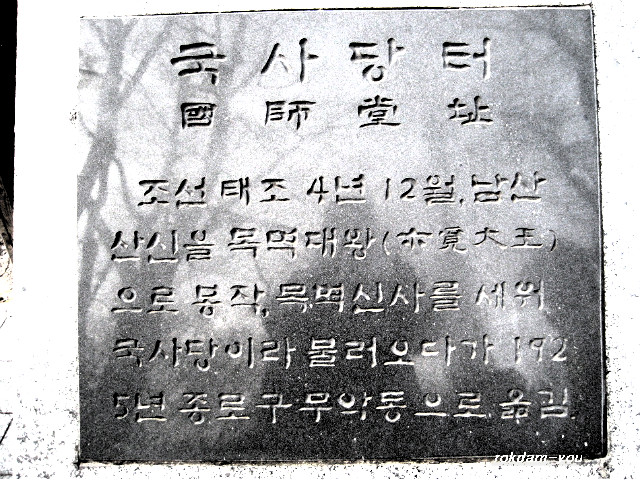 국사당터
國師堂址
조선 태조 4년 12월, 남산
산신을 목멱대왕(木覓大王)
으로 봉작, 목멱신사를 세워
국사당이라 불러오다가 192
5년 종로구 무악동으로 옮김
rokdam-you